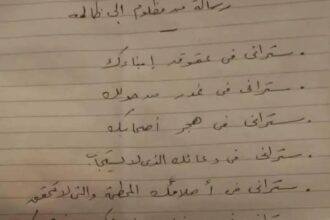 رسالة من مظلوم إلى ظالمه
. ستراني في عقوق إبناءك
. ستراني في غدر من حولك
. ستراني في هجر أصحابك
. ستراني في دعائك الذي لا يستجاب
. ستراني في أحلامك المحطمة والتي لا تتحقق